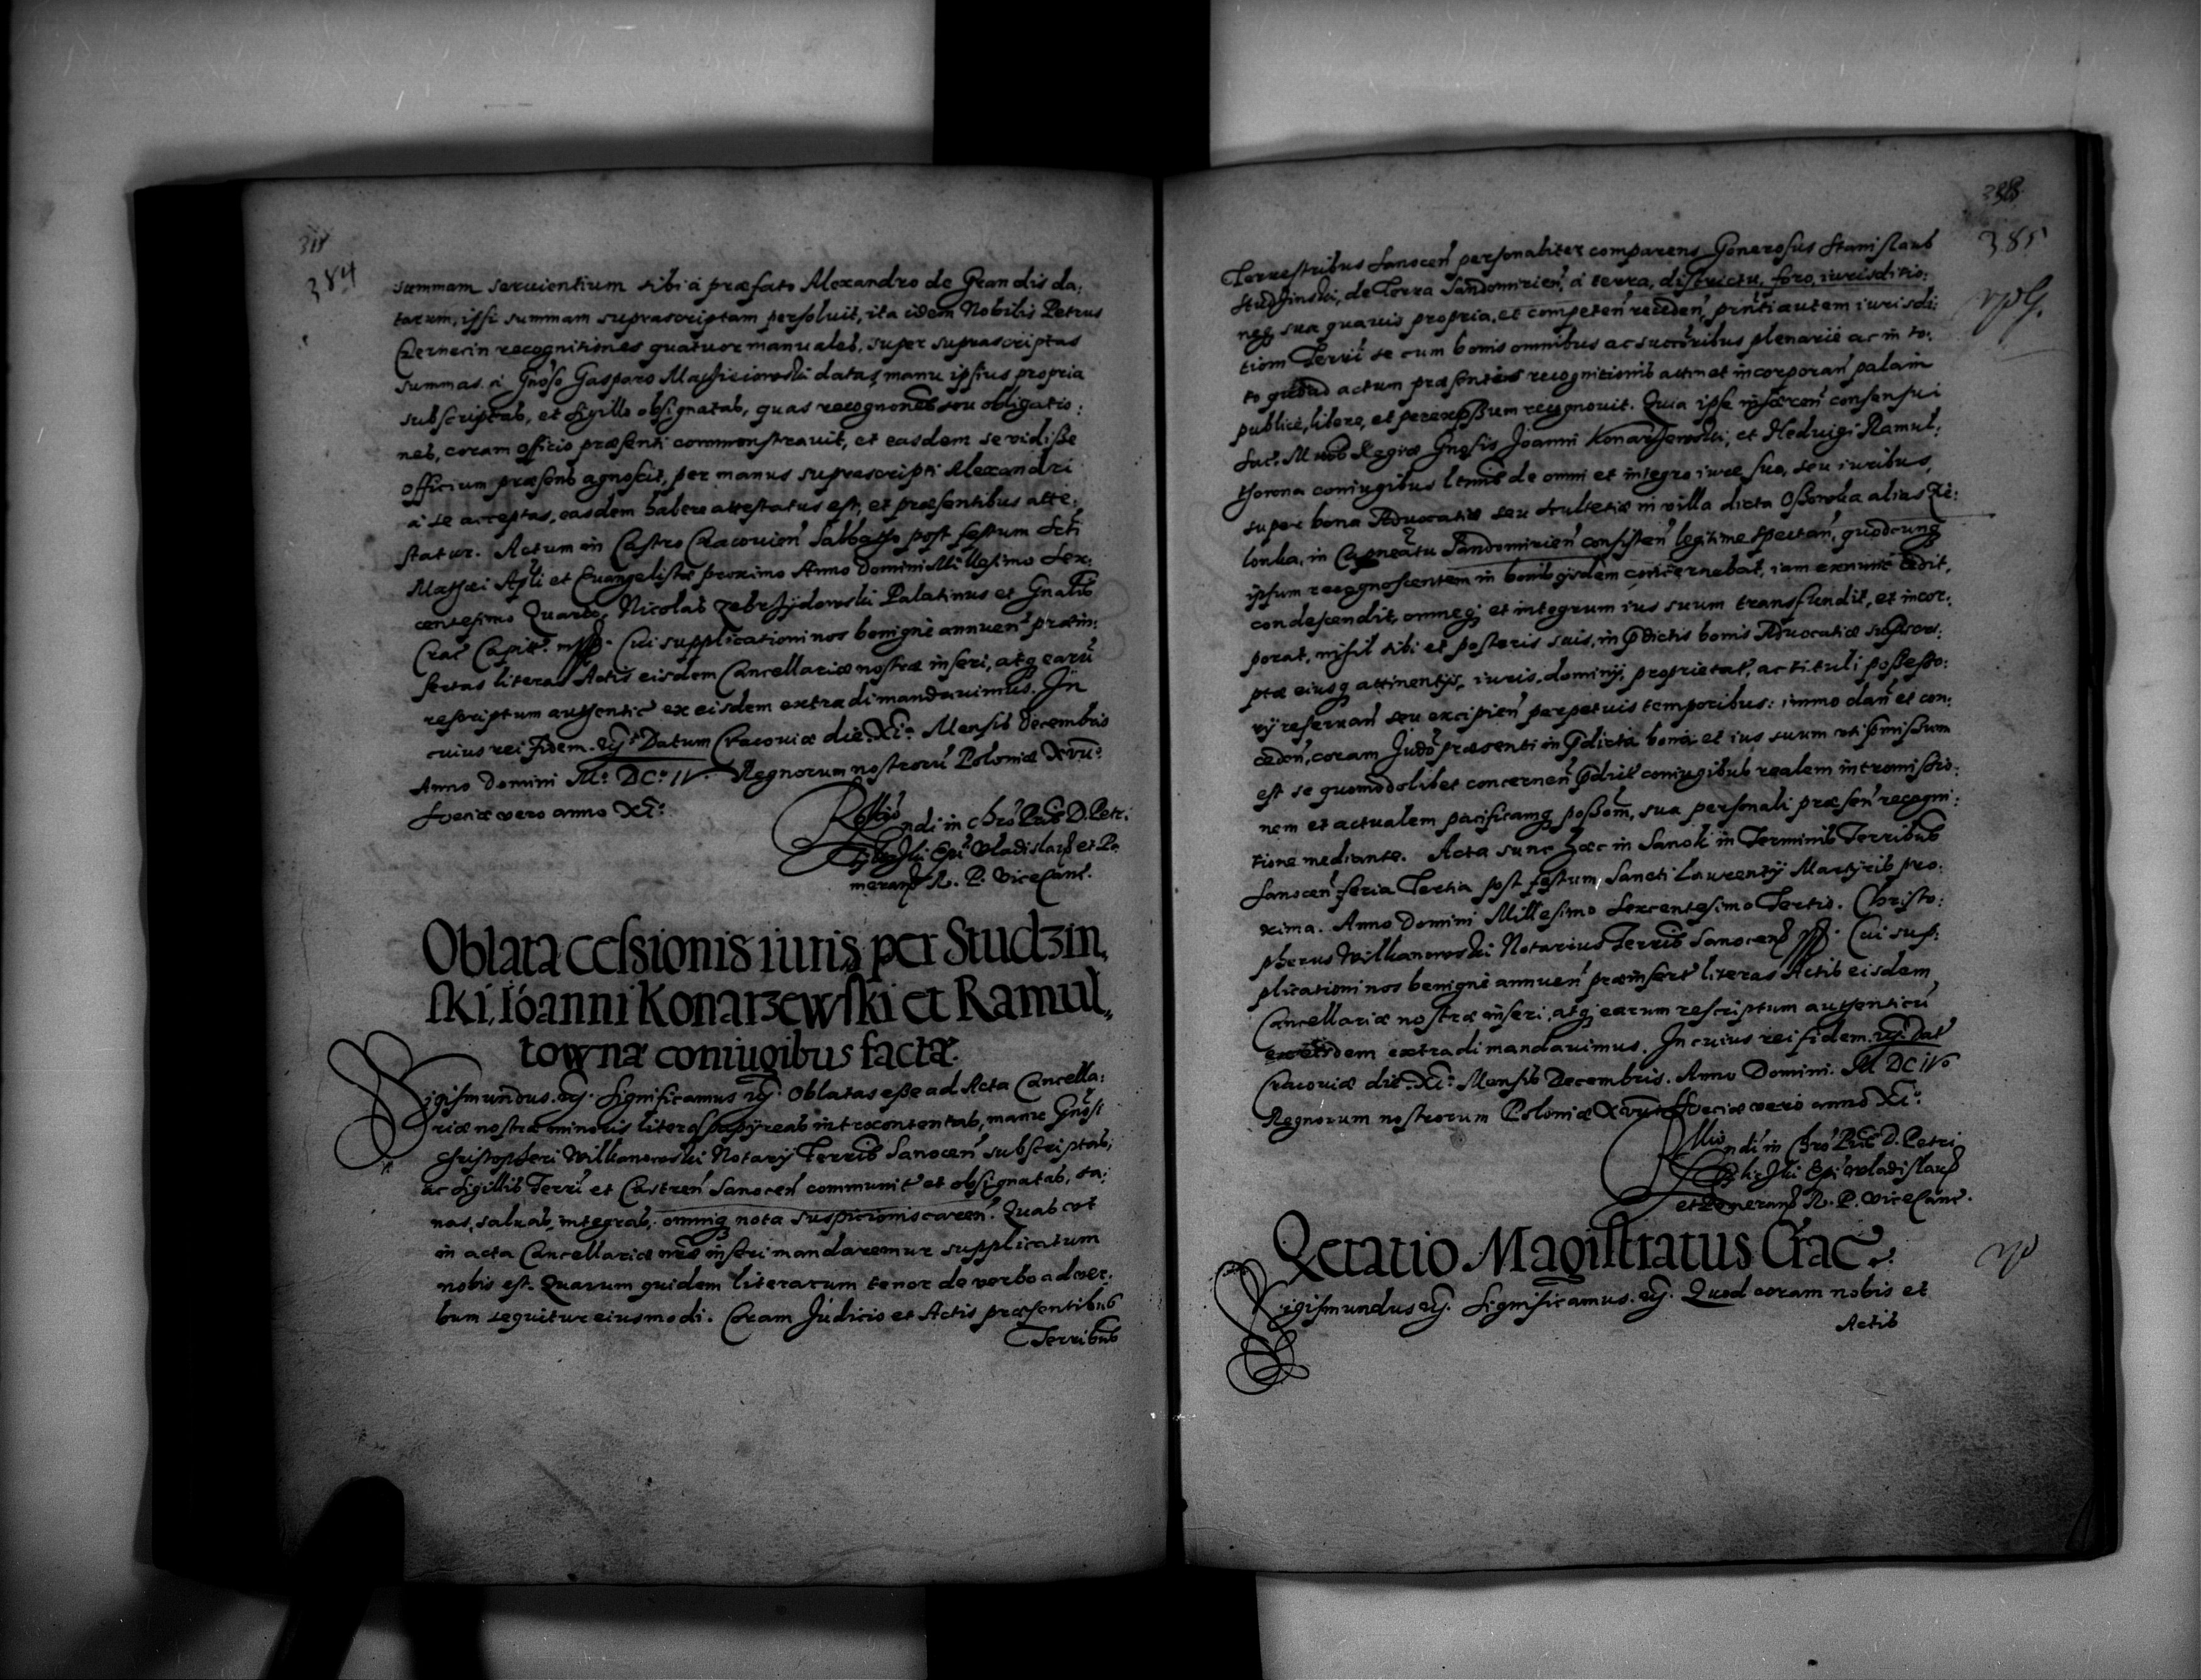 384
summam seruientium sibi à præfato Alexandro de Grandis da:
tarum, ipsi summam suprascriptam persoluit, ita idem Nobilis Petrus
recognitiones quatuor manuales, super suprascriptas
summas à Gnoso Gasparo Macieiowski datas, manu ipsius propria
subscriptas, et sigillo obsignatas, quas recognones seu obligatio:
nes, coram officio præsenti commonstrauit, et easdem se vidisse
officium præsens agnoscit, per manus suprascripti Alexandri
à se acceptas, easdem habere attestatus est, et præsentibus atte:
statur. Actum in Castro Cracouien Sabbatho post festum Scti
Mathæi Apli et Euangelistæ proximo Anno Domini Millesimo Sex:
centesimo Quarto. Nicolas Zebrzydowski Palatinus et Gnalis
Crac Capit. Cui supplicationi nos benignè annuen præin:
sertas literas Actis eisdem Cancellariæ nostræ inseri, atq earu
rescriptum authentic ex eisdem extradi mandauimus. In
cuius rei fidem. Datum Cracouiæ die XI. Mensis Decembris
Anno Domini M. DC. IV. Regnorum nostroru Poloniæ XVII.
Sueciæ vero anno XI.
ndi in Chro Pris D. Petri
Epi Vladislaus et Po
meran R. P. Vicecanc.
Oblata cessionis iuris per Studzin,
ski, Ioanni Konarzewski et Ramul,
townæ coniugibus factæ.
Sigismundus. Significamus. Oblatas esse ad Acta Cancella:
riæ nostræ minoris literas papyreas infrocontentas, manu Gnosi
Christopheri Wilkanowski Notarij Terris Sanocen subscriptas,
ac sigillis Terri et Castren Sanocen communit et obsignatas, sa:
nas, saluas, integras, omniq nota suspicionis caren. Quas vt
in acta Cancellariæ nræ inseri mandaremur supplicatum
nobis est. Quarum quidem literarum tenor de verbo ad ver:
bum sequitur eiusmodi. Coram Judicio et Actis præsentibus
Terribus
385
Terrestribus Sanocen personaliter comparens Generosus Stanislaus
Studzinski, de Terra Sandomirien, à terra, districtu, foro, iurisditio:
neq sua quauis propria, et competen receden, prnti autem iurisdi:
tiom Terri se cum bonis omnibus ac succoribus plenariè ac in to:
to quoad actum præsentis recognitionis attin et incorporan palam
publicè, libere, et per expssum recognouit. Quia ipse consensui
Sac. Mtis Regiæ Gnosis Joanni Konarzewski, et Heduigi Ramul:
thowna coniugibus ltimis de omni et integro iure suo, seu iuribus,
super bona Aduocatiæ seu Scultetiæ in villa dicta alias Zie:
lonka, in Capneatu Sandomirien consisten legitime spectan, quodcunq
ipsum recognoscentem in bonis concernebat, iam exnunc cedit,
condescendit, omneq et integrum ius suum transfundit, et incor:
porat, nihil sibi et posteris suis, in pdictis bonis Aduocatiæ suprascri:
ptæ eiusq attinentijs, iuris, dominij, proprietat, ac tituli possesso:
rij reseruan seu excipien perpetuis temporibus: immo dan et con:
ceden, coram Judo præsenti in pdicta bona et ius suum vti pmissum
est se quomodolibet concernen pdict coniugibus realem intromissio:
nem et actualem pacificamq possom, sua personali præsen recogni:
tione mediante. Acta sunt hæc in Sanok in Terminis Terribus
Sanocen feria Tertia post festum Sancti Laurentij Martyris pro:
xima. Anno Domini Millesimo Sexcentesimo Tertio. Christo:
pherus Wilkanowski Notarius Terris Sanocens. Cui sup:
plicationi nos benignè annuen præinsert literas Actis eisdem
Cancellariæ nostræ inseri, atq earum rescriptum authenticu
ex eisdem extradi mandauimus. In cuius rei fidem. Dat
Cracouiæ die XI. Mensis Decembris. Anno Domini. M DC IV.
Regnorum nostrorum Poloniæ XVII Sueciæ vero anno XI.
ndi in Chro Pris D. Petri
Epi Vladislaus
et Pomeran R. P. Vicecanc.
Qetatio Magistratus Crac.
Sigismundus. Significamus. Quod coram nobis et
Actis